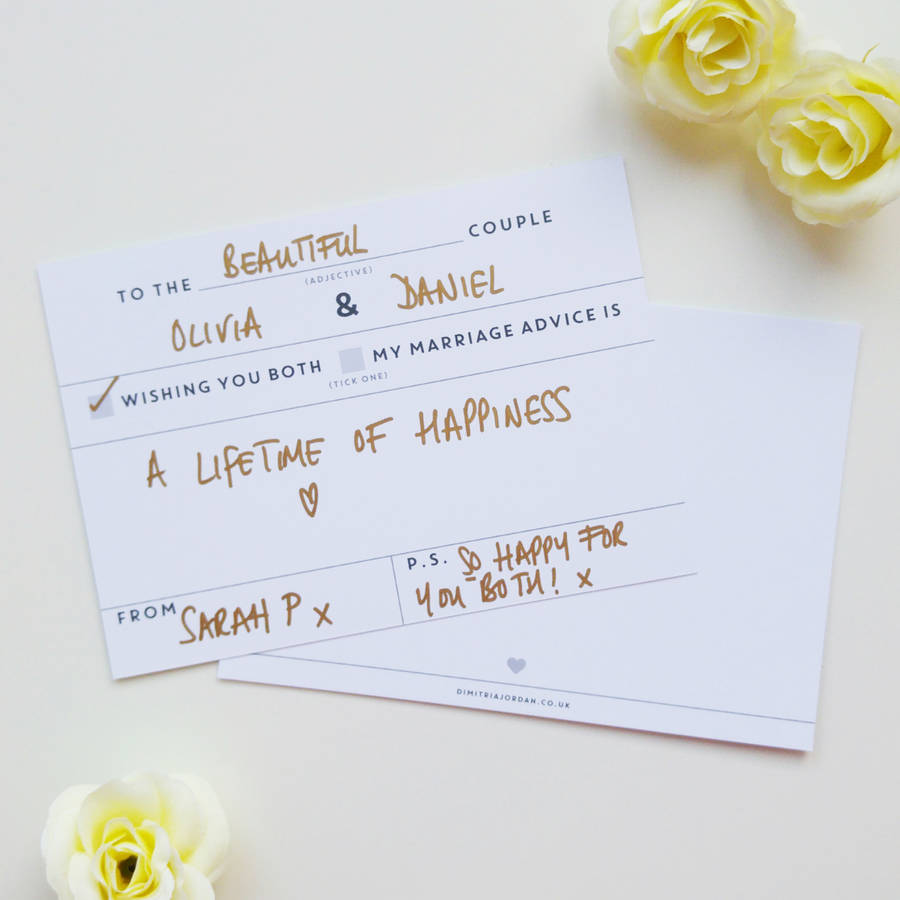 TO THE BEAUTIFUL COUPLE
(ADJECTIVE)
OLIVIA & DANIEL
WISHING YOU BOTH MY MARRIAGE ADVICE IS
(TICK ONE)
A LIFETIME OF HAPPINESS
FROM SARAH P x
P.S. SO HAPPY FOR
YOU BOTH! x
DIMITRIAJORDAN.CO.UK